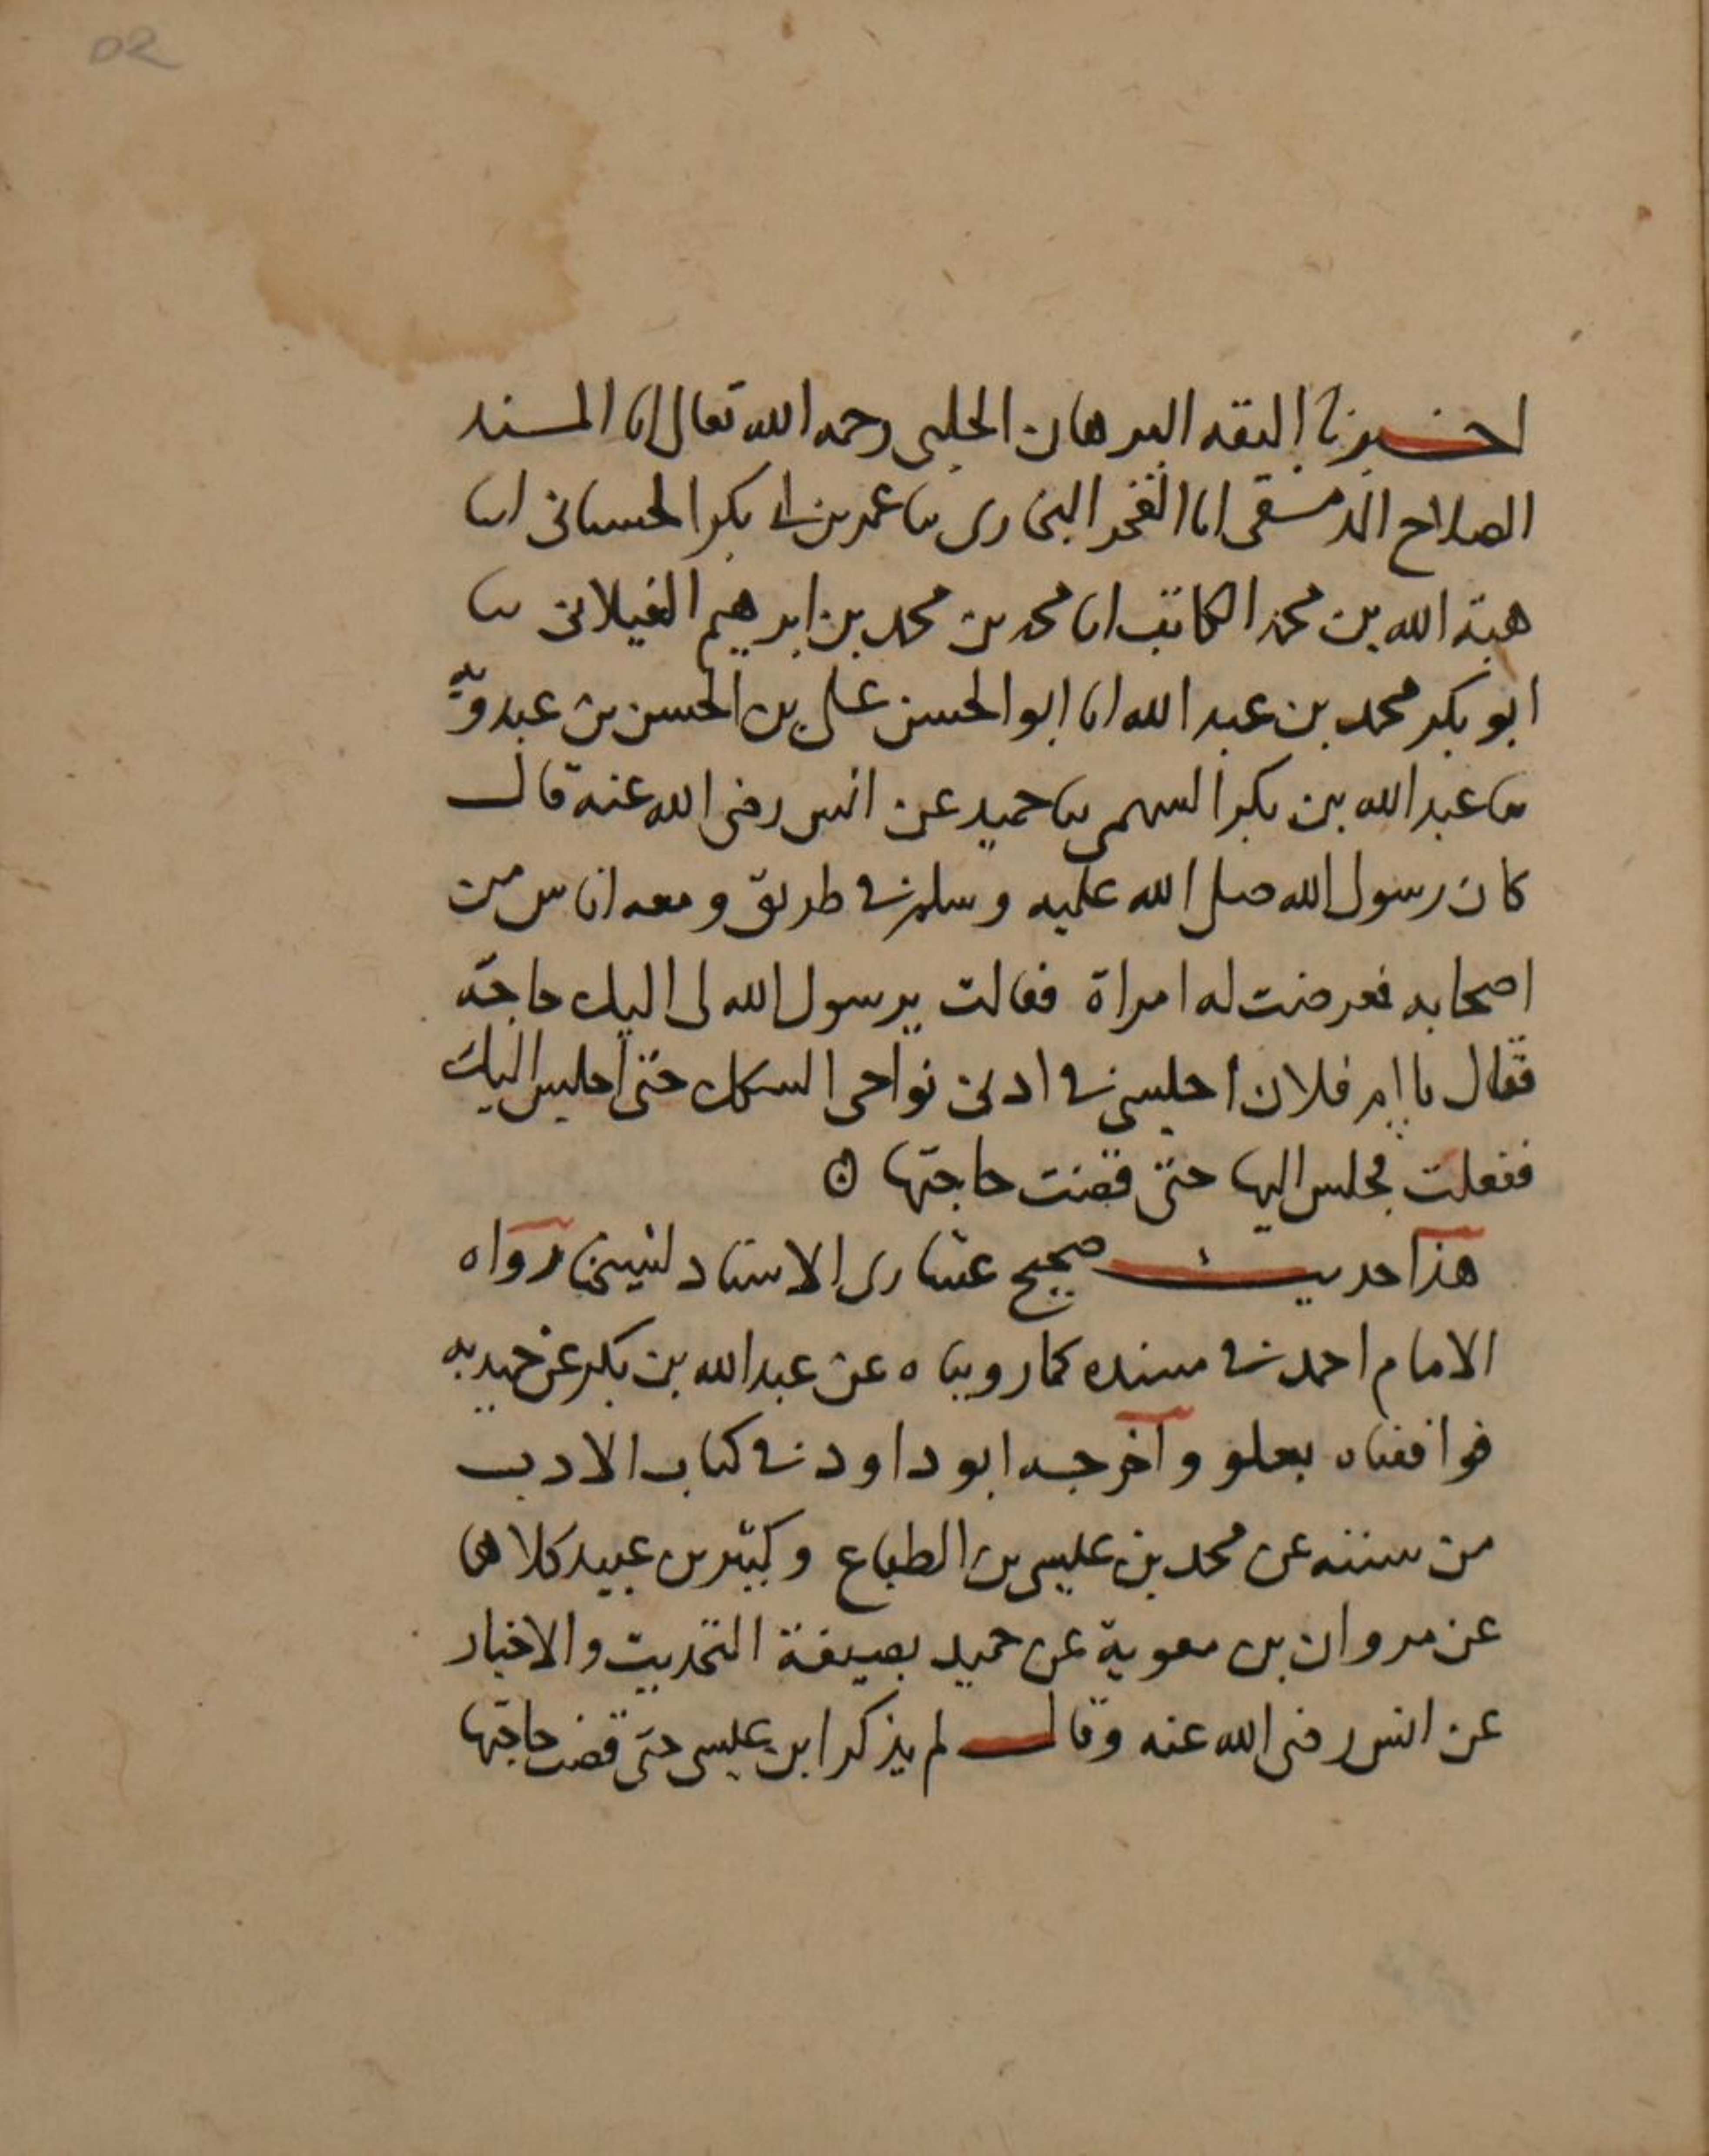 50
اخبرنا الثقة البرهان الحلبى رحمه الله تعالى انا المسند
الصلاح الدمشقى انا الفخر البخارى ثنا عمر بن ابى بكر الحسانى انا
هبة الله بن محمد الكاتب انا محمد بن محمد بن ابرهيم الغيلانى ثنا
ابو بكر محمد بن عبد الله انا ابو الحسن على بن الحسن بن عبدويه
ثنا عبد الله بن بكر السهمى ثنا حميد عن انس رضى الله عنه قال
كان رسول الله صلى الله عليه وسلم فى طريق ومعه اناس من
اصحابه فعرضت له امراة فقالت يرسول الله لى اليك حاجة
فقال يا ام فلان اجلسى فى ادنى نواحى السكك حتى اجلس اليك
ففعلت فجلس اليها حتى قضت حاجتها
هذا حديث صحيح عشارى الاسناد لشيخنا رواه
الامام احمد فى مسنده كما رويناه عن عبد الله بن بكر عن حميد به
فوافقناه بعلو واخرجه ابو داود فى كتاب الادب
من سننه عن محمد بن عيسى بن الطباع وكثير بن عبيد كلاهما
عن مروان بن معوية عن حميد بصيغة التحديث والاخبار
عن انس رضى الله عنه وقال لم يذكر ابن عيسى حتى قضت حاجتها